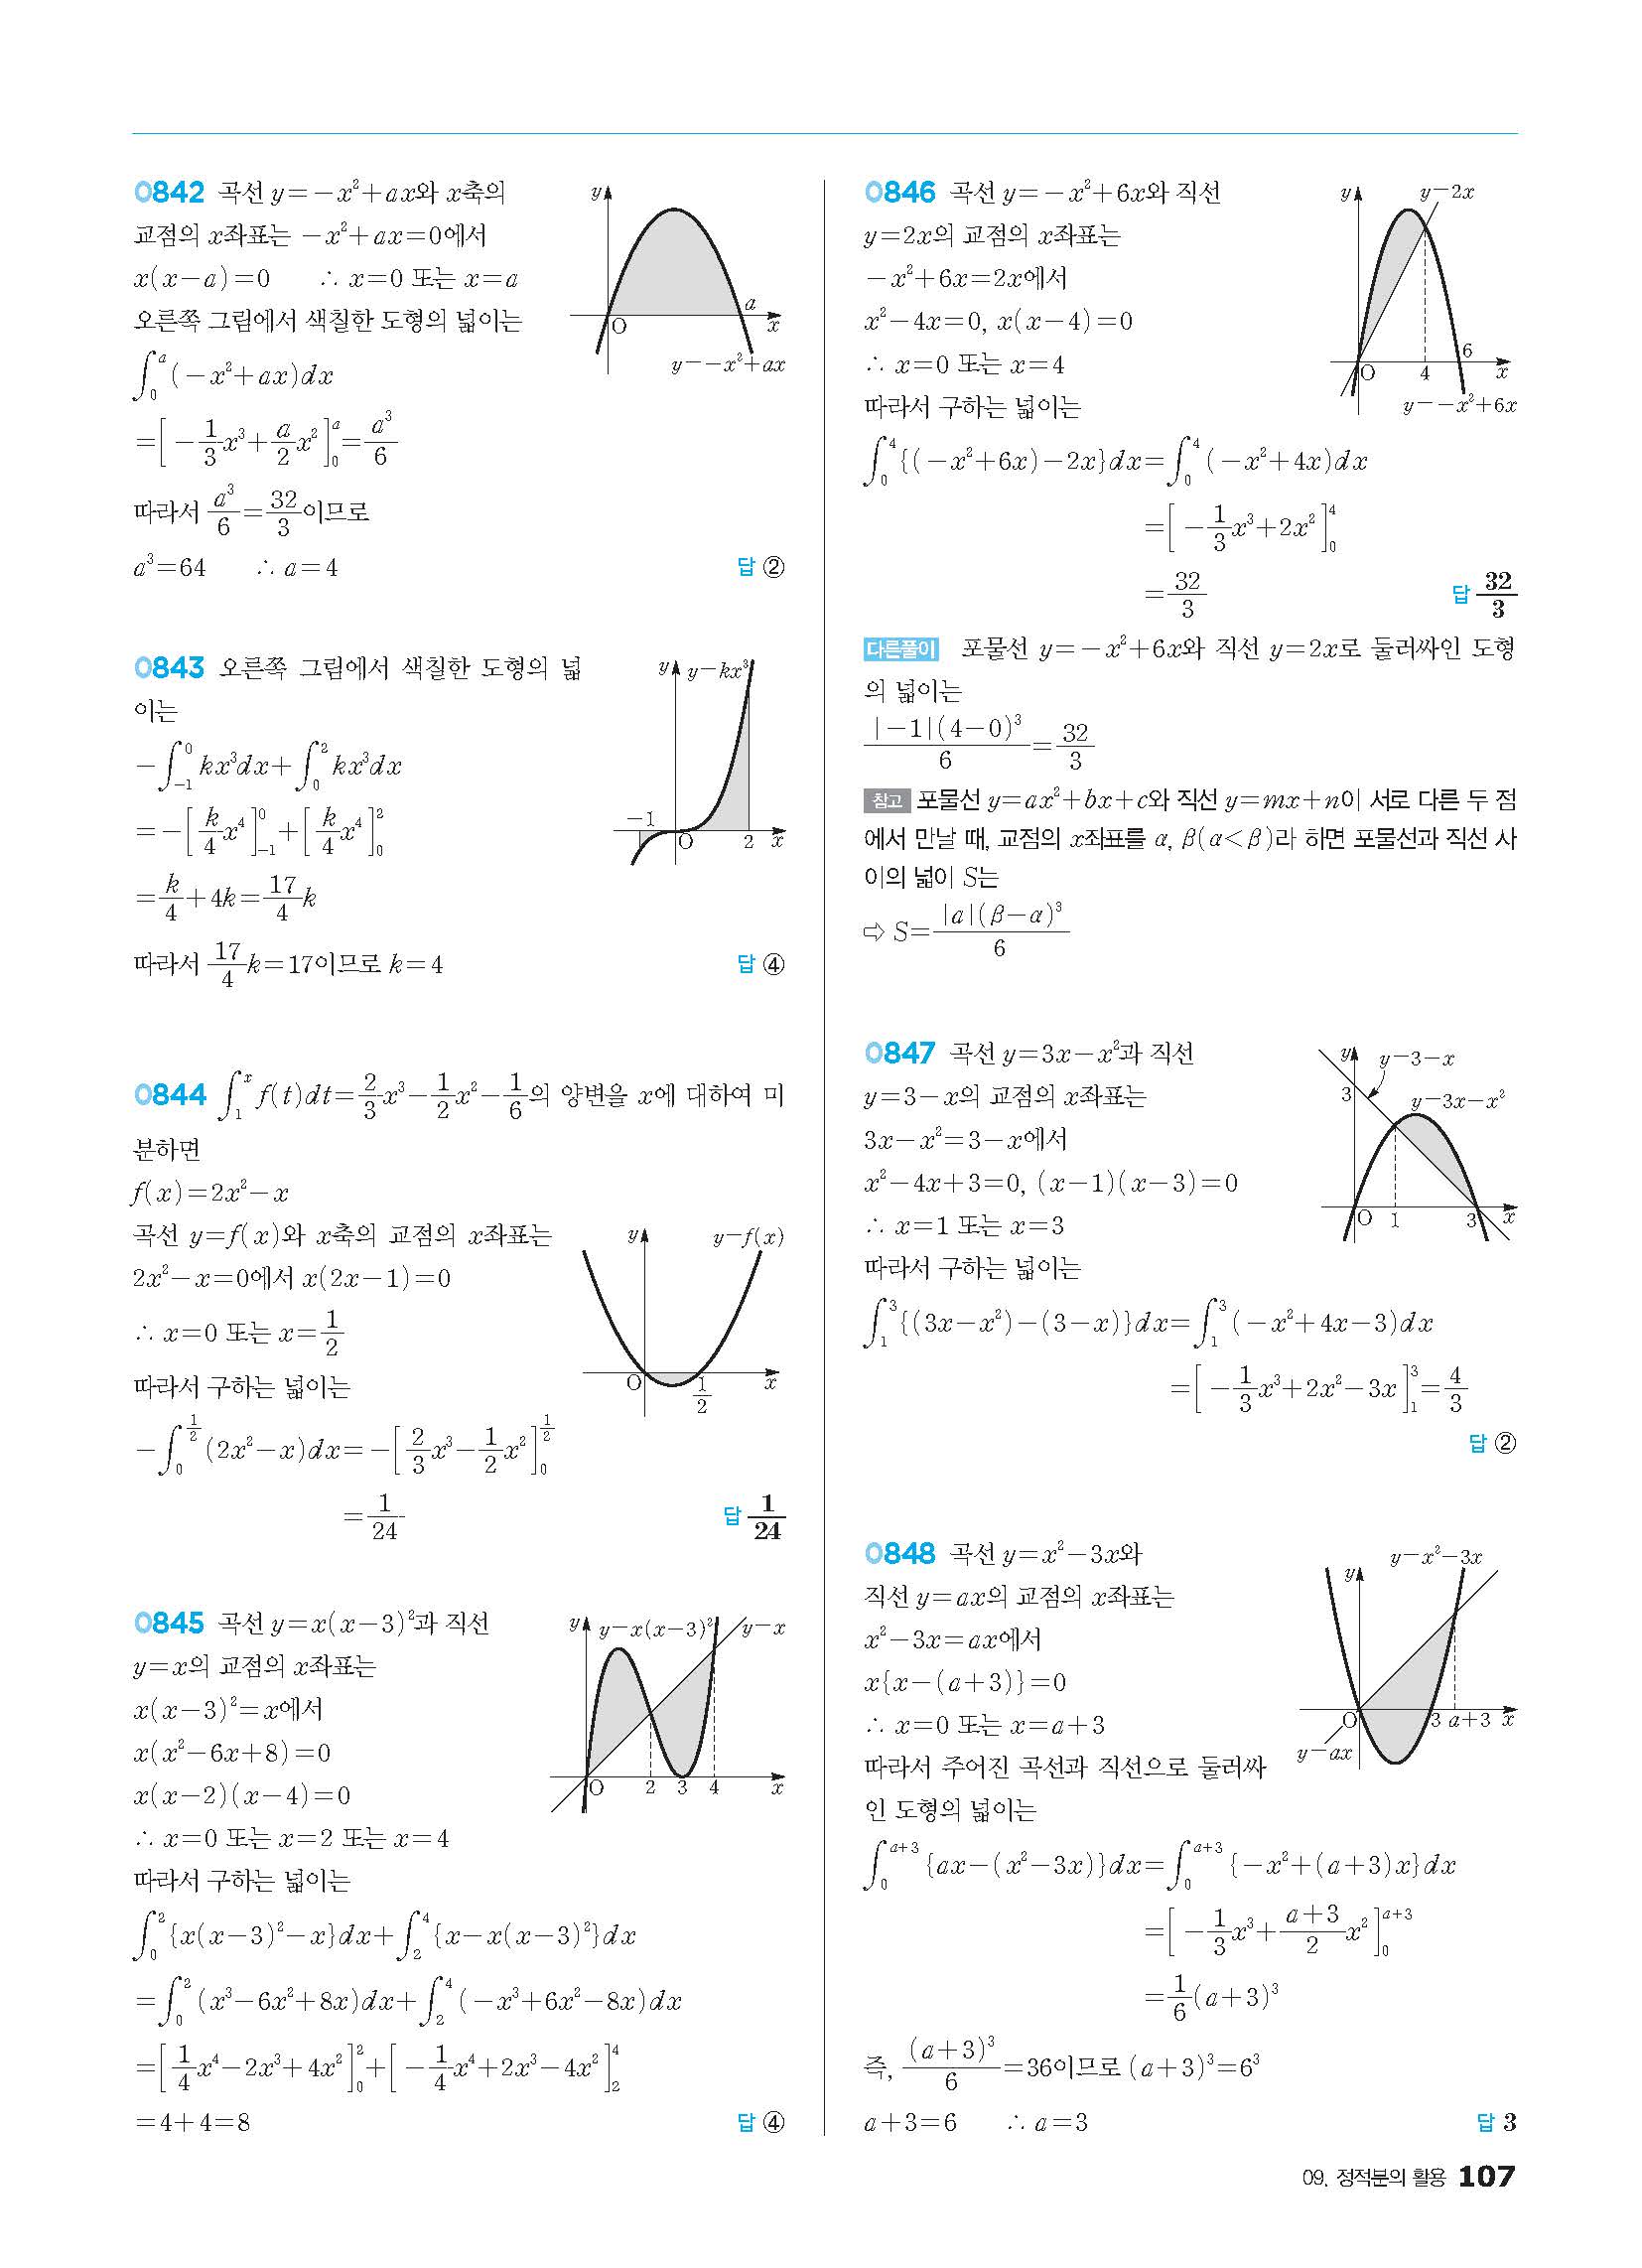 0842 곡선 y=-x²+ax와 x축의
교점의 x좌표는 -x²+ax=0에서
x(x-a)=0 ∴ x=0 또는 x=a
오른쪽 그림에서 색칠한 도형의 넓이는
∫₀ᵃ(-x²+ax)dx
=[-1/3x³+a/2x²]₀ᵃ=a³/6
따라서 a³/6=32/3이므로
a³=64 ∴ a=4 답 ②
y
a
O
x
y=-x²+ax
0843 오른쪽 그림에서 색칠한 도형의 넓
이는
-∫₋₁⁰kx³dx+∫₀²kx³dx
=-[k/4x⁴]₋₁⁰+[k/4x⁴]₀²
=k/4+4k=17/4k
따라서 17/4k=17이므로 k=4 답 ④
y y=kx³
-1
O 2 x
0844 ∫₁ˣf(t)dt=2/3x³-1/2x²-1/6의 양변을 x에 대하여 미
분하면
f(x)=2x²-x
곡선 y=f(x)와 x축의 교점의 x좌표는
2x²-x=0에서 x(2x-1)=0
∴ x=0 또는 x=1/2
따라서 구하는 넓이는
-∫₀^(1/2)(2x²-x)dx=-[2/3x³-1/2x²]₀^(1/2)
=1/24 답 1/24
y y=f(x)
O 1/2 x
0845 곡선 y=x(x-3)²과 직선
y=x의 교점의 x좌표는
x(x-3)²=x에서
x(x²-6x+8)=0
x(x-2)(x-4)=0
∴ x=0 또는 x=2 또는 x=4
따라서 구하는 넓이는
∫₀²{x(x-3)²-x}dx+∫₂⁴{x-x(x-3)²}dx
=∫₀²(x³-6x²+8x)dx+∫₂⁴(-x³+6x²-8x)dx
=[1/4x⁴-2x³+4x²]₀²+[-1/4x⁴+2x³-4x²]₂⁴
=4+4=8 답 ④
y y=x(x-3)² y=x
O 2 3 4 x
0846 곡선 y=-x²+6x와 직선
y=2x의 교점의 x좌표는
-x²+6x=2x에서
x²-4x=0, x(x-4)=0
∴ x=0 또는 x=4
따라서 구하는 넓이는
∫₀⁴{(-x²+6x)-2x}dx=∫₀⁴(-x²+4x)dx
=[-1/3x³+2x²]₀⁴
=32/3 답 32/3
y y=2x
6
O 4 x
y=-x²+6x
다른풀이 포물선 y=-x²+6x와 직선 y=2x로 둘러싸인 도형
의 넓이는
|-1|(4-0)³/6=32/3
참고 포물선 y=ax²+bx+c와 직선 y=mx+n이 서로 다른 두 점
에서 만날 때, 교점의 x좌표를 α, β(α<β)라 하면 포물선과 직선 사
이의 넓이 S는
⇨ S=|a|(β-α)³/6
0847 곡선 y=3x-x²과 직선
y=3-x의 교점의 x좌표는
3x-x²=3-x에서
x²-4x+3=0, (x-1)(x-3)=0
∴ x=1 또는 x=3
따라서 구하는 넓이는
∫₁³{(3x-x²)-(3-x)}dx=∫₁³(-x²+4x-3)dx
=[-1/3x³+2x²-3x]₁³=4/3
답 ②
y y=3-x
3
y=3x-x²
O 1 3 x
0848 곡선 y=x²-3x와
직선 y=ax의 교점의 x좌표는
x²-3x=ax에서
x{x-(a+3)}=0
∴ x=0 또는 x=a+3
따라서 주어진 곡선과 직선으로 둘러싸
인 도형의 넓이는
∫₀^(a+3){ax-(x²-3x)}dx=∫₀^(a+3){-x²+(a+3)x}dx
=[-1/3x³+(a+3)/2x²]₀^(a+3)
=1/6(a+3)³
즉, (a+3)³/6=36이므로 (a+3)³=6³
a+3=6 ∴ a=3 답 3
y=x²-3x
y
O 3 a+3 x
y=ax
09. 정적분의 활용 107